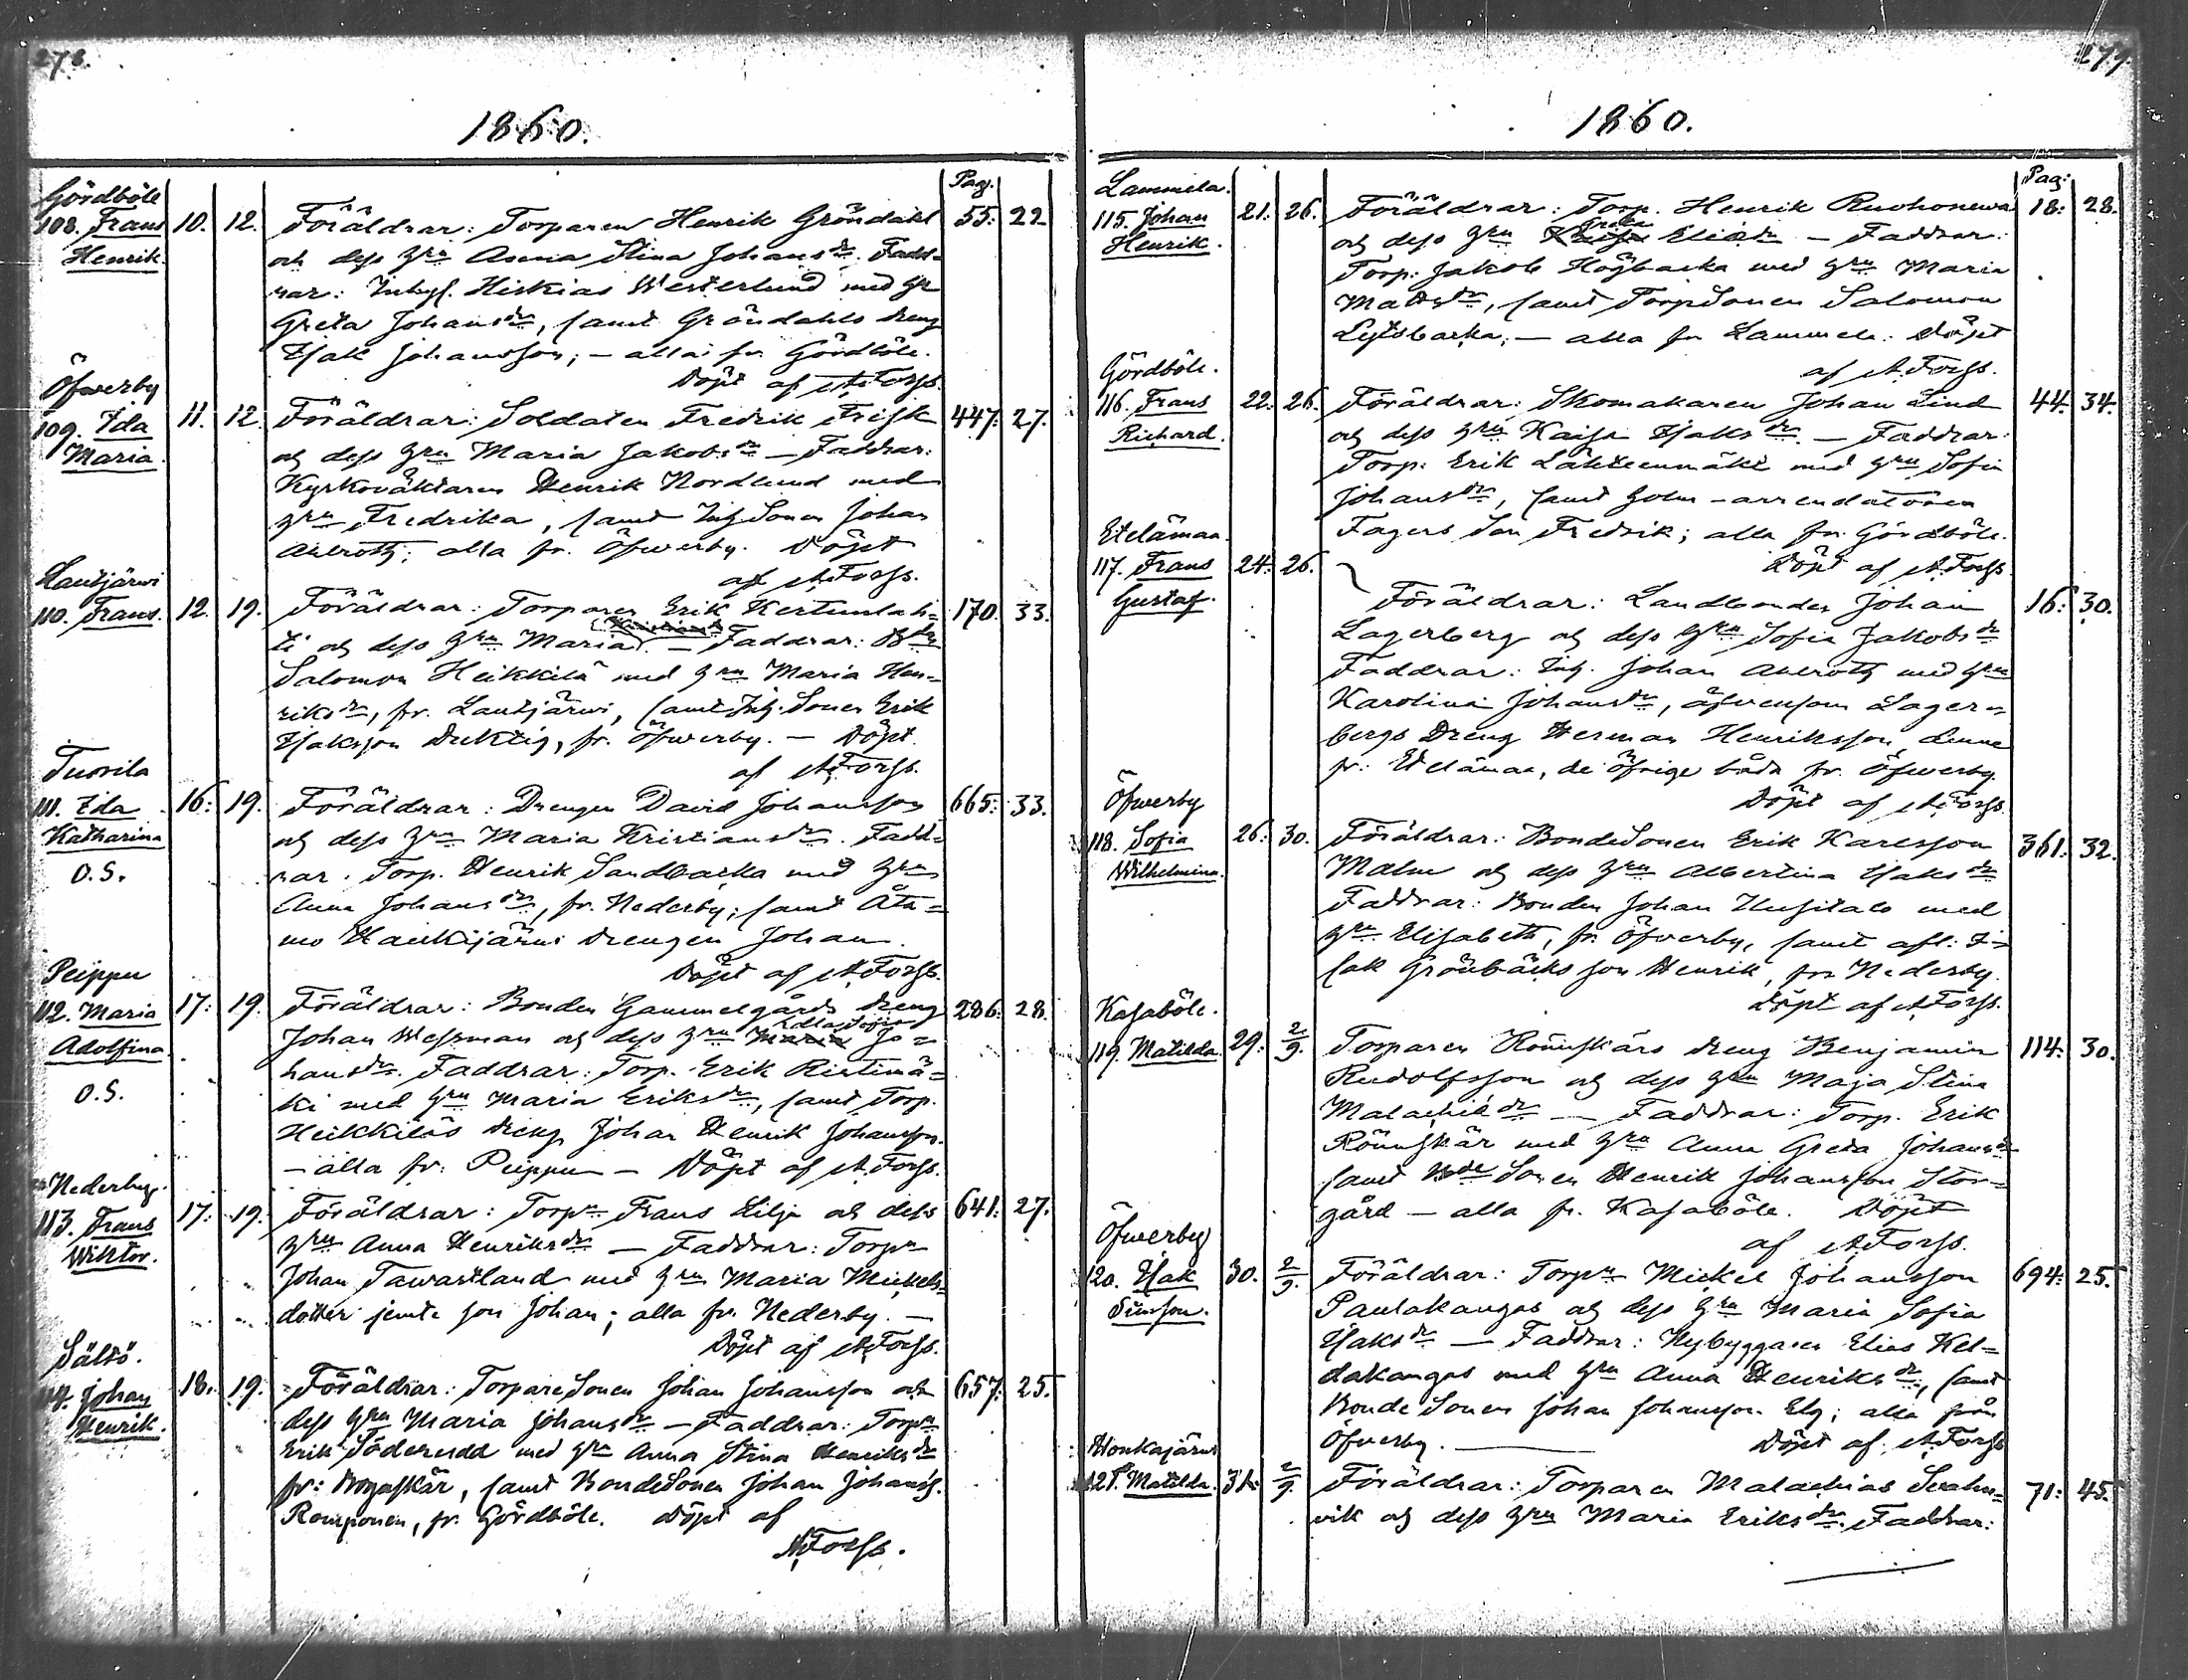 278.
1860.
Pag.
Gördböle
108. Frans
Henrik.
10. 12. Föräldrar: Torparen Henrik Gröndahl 55: 22
och dess hru Anna Stina Johansdr. Fadd-
rar: Inhys. Hiskias Westerlund med hr
Greta Johansdr, samt Gröndahls dreng
Isak Johansson; — alla fr. Gördböle.
Döpt af A. Forss.
Öfwerby
109. Ida
Maria.
11. 12 Föräldrar: Soldaten Fredrik Frisk 447: 27.
och dess hru Maria Jakobsdr — Faddrar:
Kyrkoväktaren Henrik Nordlund med
hru Fredrika, samt Inh. Sonen Johan
Ahlroth; alla fr. Öfwerby. Döpt
af A. Forss.
Lautjärwi
110. Frans.
12. 19. Föräldrar: Torparen Erik Kertunlah= 170. 33.
ti och dess hru Maria — Faddrar:
Salomon Heikkilä med hru Maria Hen=
riksdr, fr. Lautjärwi, samt Inh. Sonen Erik
Isaksson Duktig, fr. Öfwerby. — Döpt
af A. Forss.
Tuorila
111. Ida
Katharina
O.S.
16: 19. Föräldrar: Drengen David Johansson 665: 33.
och dess hru Maria Kristiansdr. Fadd=
rar. Torp. Henrik Sandbacka med hru
Anna Johansdr, fr. Nederby; samt Åta=
mo Haukijärwi drengen Johan.
Döpt af A. Forss.
Peippu
112. Maria
Adolfina
O.S.
17: 19. Föräldrar: Bonden Gammelgårds dreng 286: 28.
Johan Wessman och dess hru Maria Jo=
hansdr. Faddrar: Torp. Erik Ristimä=
ki med hru Maria Eriksdr, samt Torp.
Heikkiläs dreng Johan Henrik Johansson.
— alla fr: Peippu — Döpt af A. Forss.
Nederby.
113. Frans
Wiktor.
17: 19. Föräldrar: Torpn Frans Lilja och dess 641: 27.
hru Anna Henriksdr — Faddrar: Torpn
Johan Tawastland med hru Maria Mickels-
dotter jemte son Johan; alla fr. Nederby. —
Döpt af A. Forss.
Sältö.
114. Johan
Henrik.
18. 19. Föräldrar: TorpareSonen Johan Johansson och 657: 25.
dess hru Maria Johansdr — Faddrar: Torpn
Erik Söderudd med hru Anna Stina Henriksdr
fr: samt BondeSonen Johan Johanss.
Romponen, fr. Gördböle. Döpt af
A. Forss.
279
1860.
Pag:
Lammela.
115. Johan
Henrik.
21: 26. Föräldrar: Torp. Henrik Ruohonewa 18: 28.
och dess hru Greta Eliedr — Faddrar:
Torp: Jakob Högbacka med hru Maria
Mattsdr, samt TorpSonen Salomon
Lytsbacka; — alla fr Lammela. Döpt
af A. Forss.
Gördböle.
116. Frans
Richard.
22. 26. Föräldrar: Skomakaren Johan Lind 44: 34.
och dess hru Kaisa Isaksdr. — Faddrar:
Torp: Erik Lähteenmäki med hru Sofia
Johansdr, samt Holm-arrendatoren
Fagers Son Fredrik; alla fr. Gördböle.
Döpt af A. Forss.
Etelämaa.
117. Frans
Gustaf.
24: 26.
Föräldrar: Landbonden Johan 16: 30.
Lagerberg och dess hru Sofia Jakobsdr
Faddrar: Inh. Johan Ahlroth med hru
Karolina Johansdr, äfwensom Lager=
bergs Dreng Herman Henriksson, denne
fr: Etelämaa, de öfrige båda fr. Öfwerby.
Döpt af A. Forss.
Öfwerby
118. Sofia
Wilhelmina.
26: 30. Föräldrar: BondeSonen Erik Karlsson 361: 32.
Malm och dess hru Albertina Isaksdr
Faddrar: Bonden Johan Uusitalo med
hru Elisabeth, fr. Öfwerby, samt afl: I=
sak Grönbäcks son Henrik, fr Nederby.
Döpt af A. Forss.
Kasaböle.
119. Matilda
29: 2/9. Torparen Rönnskärs dreng Benjamin 114: 30.
Rudolfsson och dess hru Maja Stina
Malachiédr — Faddrar: Torp. Erik
Rönnskär med hru Anna Greta Johansdr
samt Bde Sonen Henrik Johansson Stor=
gård — alla fr. Kasaböle. Döpt
af A. Forss.
Öfwerby
120. Isak
Simson.
30. 2/9. Föräldrar: Torpn Mickel Johansson 694: 25.
Paulakangas och dess hru Maria Sofia
Isaksdr — Faddrar: Nybyggaren Elias Kel=
lakangas med hru Anna Henriksdr, samt
BondeSonen Johan Johansson Elg; alla från
Öfwerby. — Döpt af A. Forss
Honkajärwi
121. Matilda.
31. 2/9 Föräldrar: Torparen Malachias 71: 45.
och dess hru Maria Eriksdr. Faddrar: